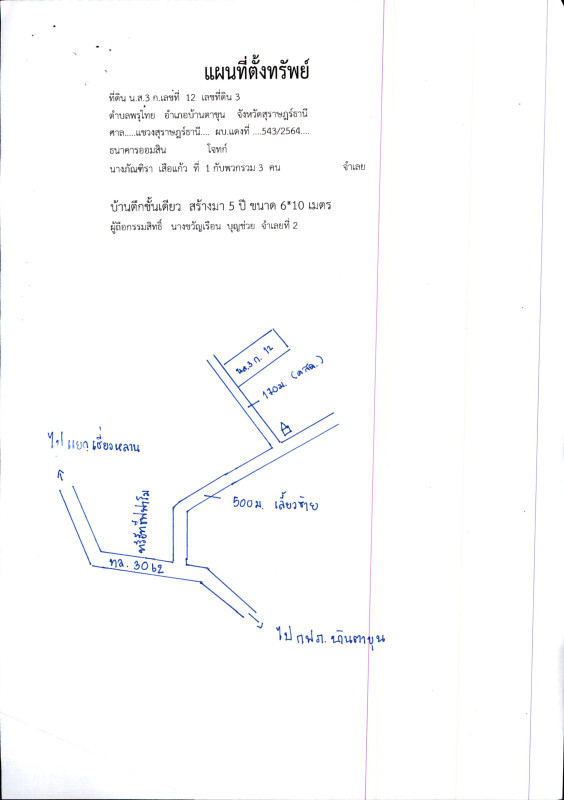 แผนที่ตั้งทรัพย์
ที่ดิน น.ส.3 ก.เลขที่ 12 เลขที่ดิน 3
ตำบลพรุไทย อำเภอบ้านตาขุน จังหวัดสุราษฎร์ธานี
ศาล.....แขวงสุราษฎร์ธานี.... ผบ.แดงที่ ....543/2564....
ธนาคารออมสิน โจทก์
นางภัณฑิรา เสือแก้ว ที่ 1 กับพวกรวม 3 คน จำเลย
บ้านตึกชั้นเดียว สร้างมา 5 ปี ขนาด 6*10 เมตร
ผู้ถือกรรมสิทธิ์ นางขวัญเรือน บุญช่วย จำเลยที่ 2
น.ส.3 ก. 12
170 ม. (คสล.)
ไปแยกเชี่ยวหลาน
500 ม. เลี้ยวซ้าย
ทล. 3062
ไป กฟภ. บ้านตาขุน